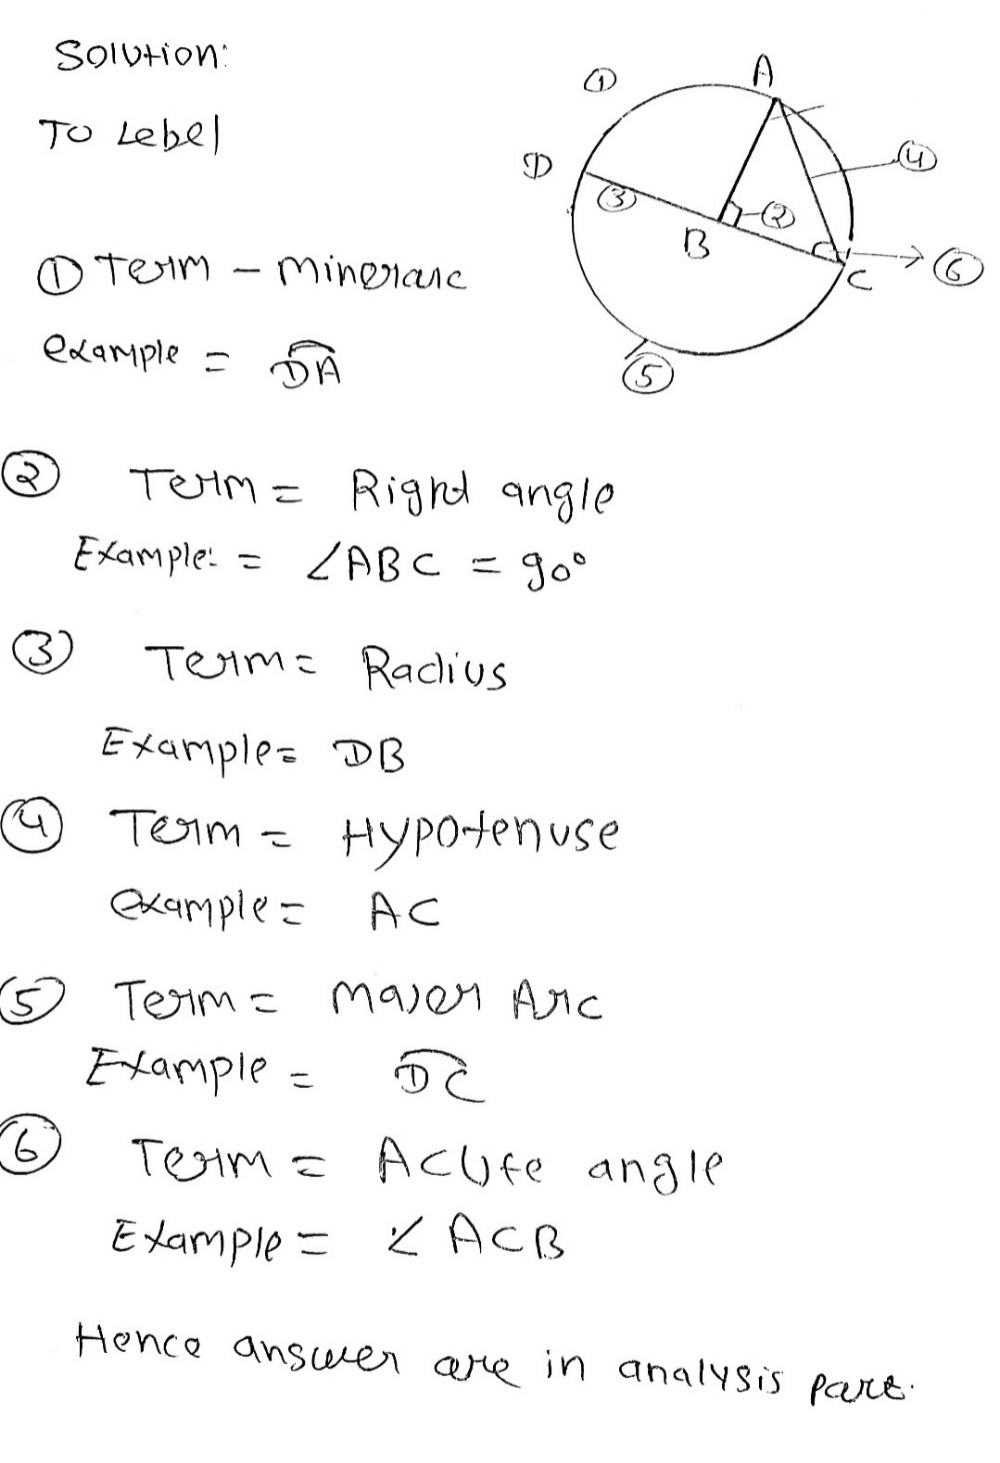 Solution:
To Lebel
① A
D ③ ② ④
B C ⑥
⑤
① Term - minorarc
example = DA
② Term = Right angle
Example: = ∠ABC = 90°
③ Term = Radius
Example = DB
④ Term = Hypotenuse
example = AC
⑤ Term = Majer Arc
Example = DC
⑥ Term = Acute angle
Example = ∠ACB
Hence answer are in analysis part.